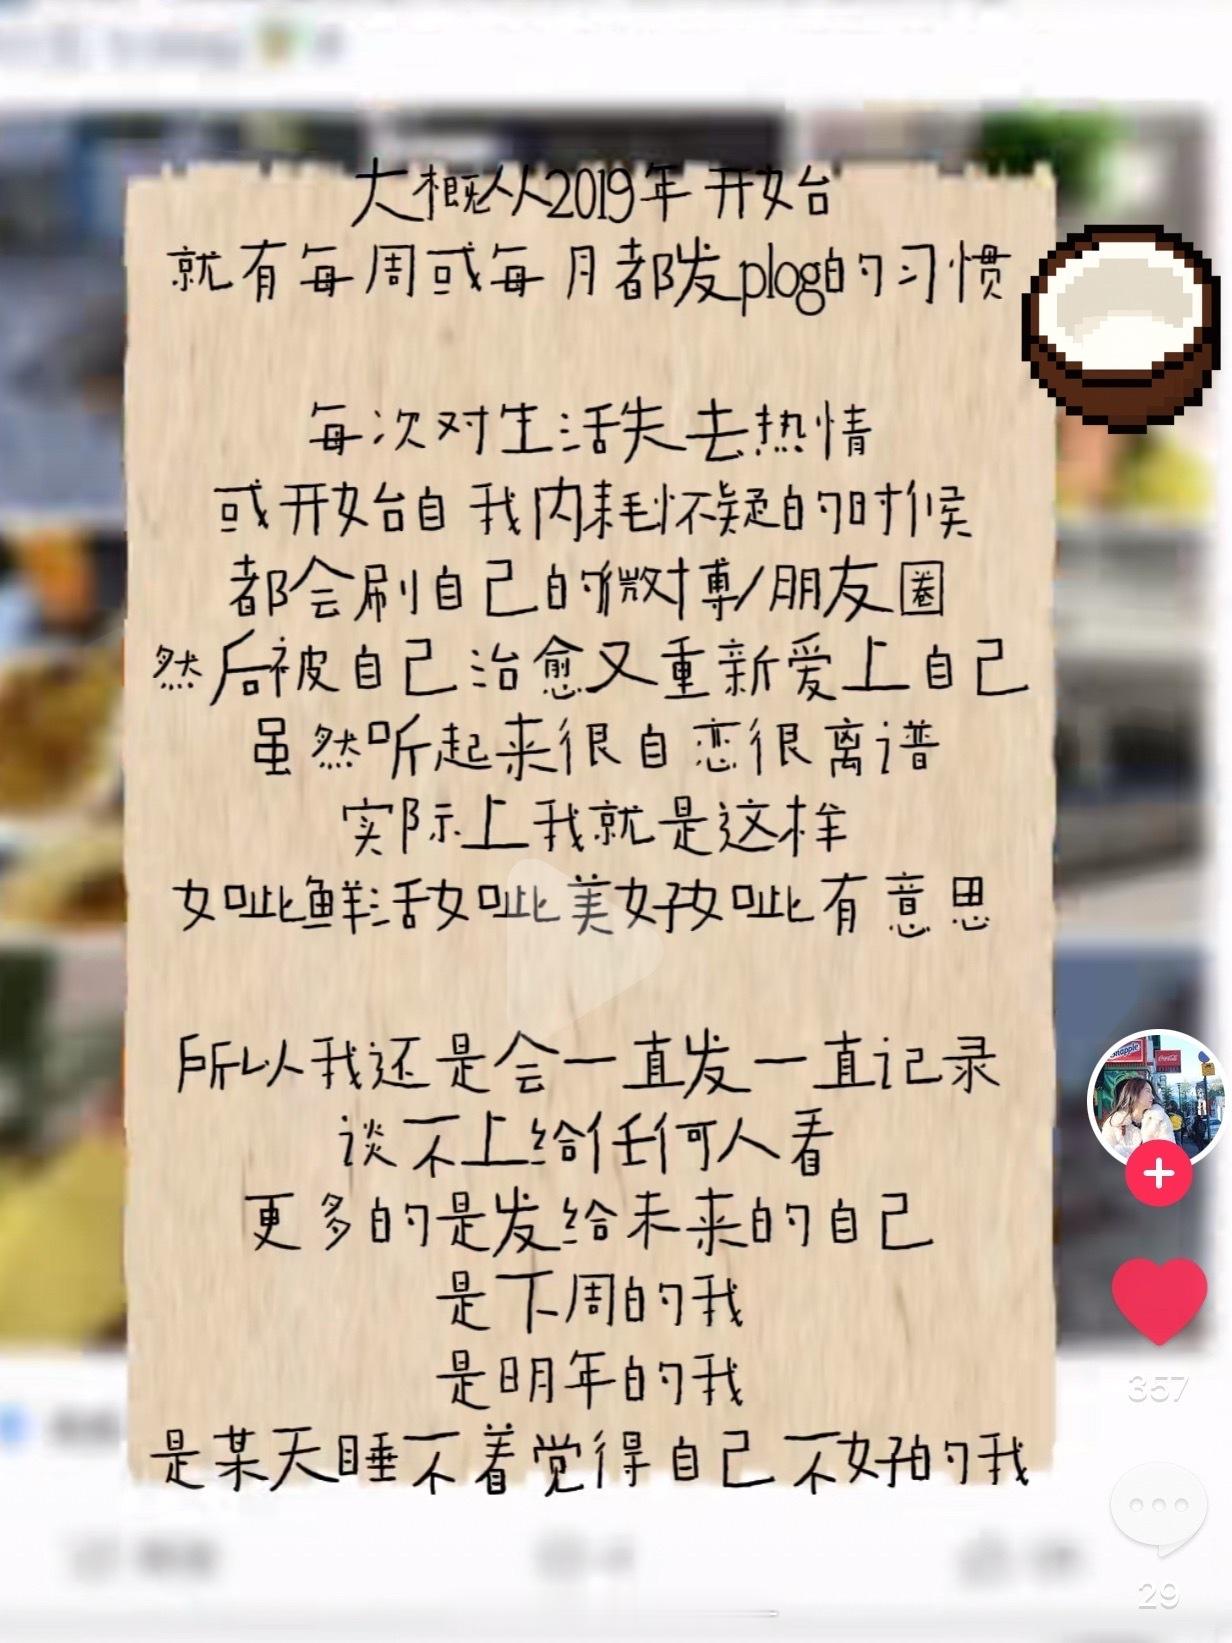 大概从2019年开始
就有每周或每月都发plog的习惯
每次对生活失去热情
或开始自我内耗怀疑的时候
都会刷自己的微博/朋友圈
然后被自己治愈又重新爱上自己
虽然听起来很自恋很离谱
实际上我就是这样
如此鲜活如此美好如此有意思
所以我还是会一直发一直记录
谈不上给任何人看
更多的是发给未来的自己
是下周的我
是明年的我
是某天睡不着觉得自己不好的我
Snapple
Coca-Cola
357
29